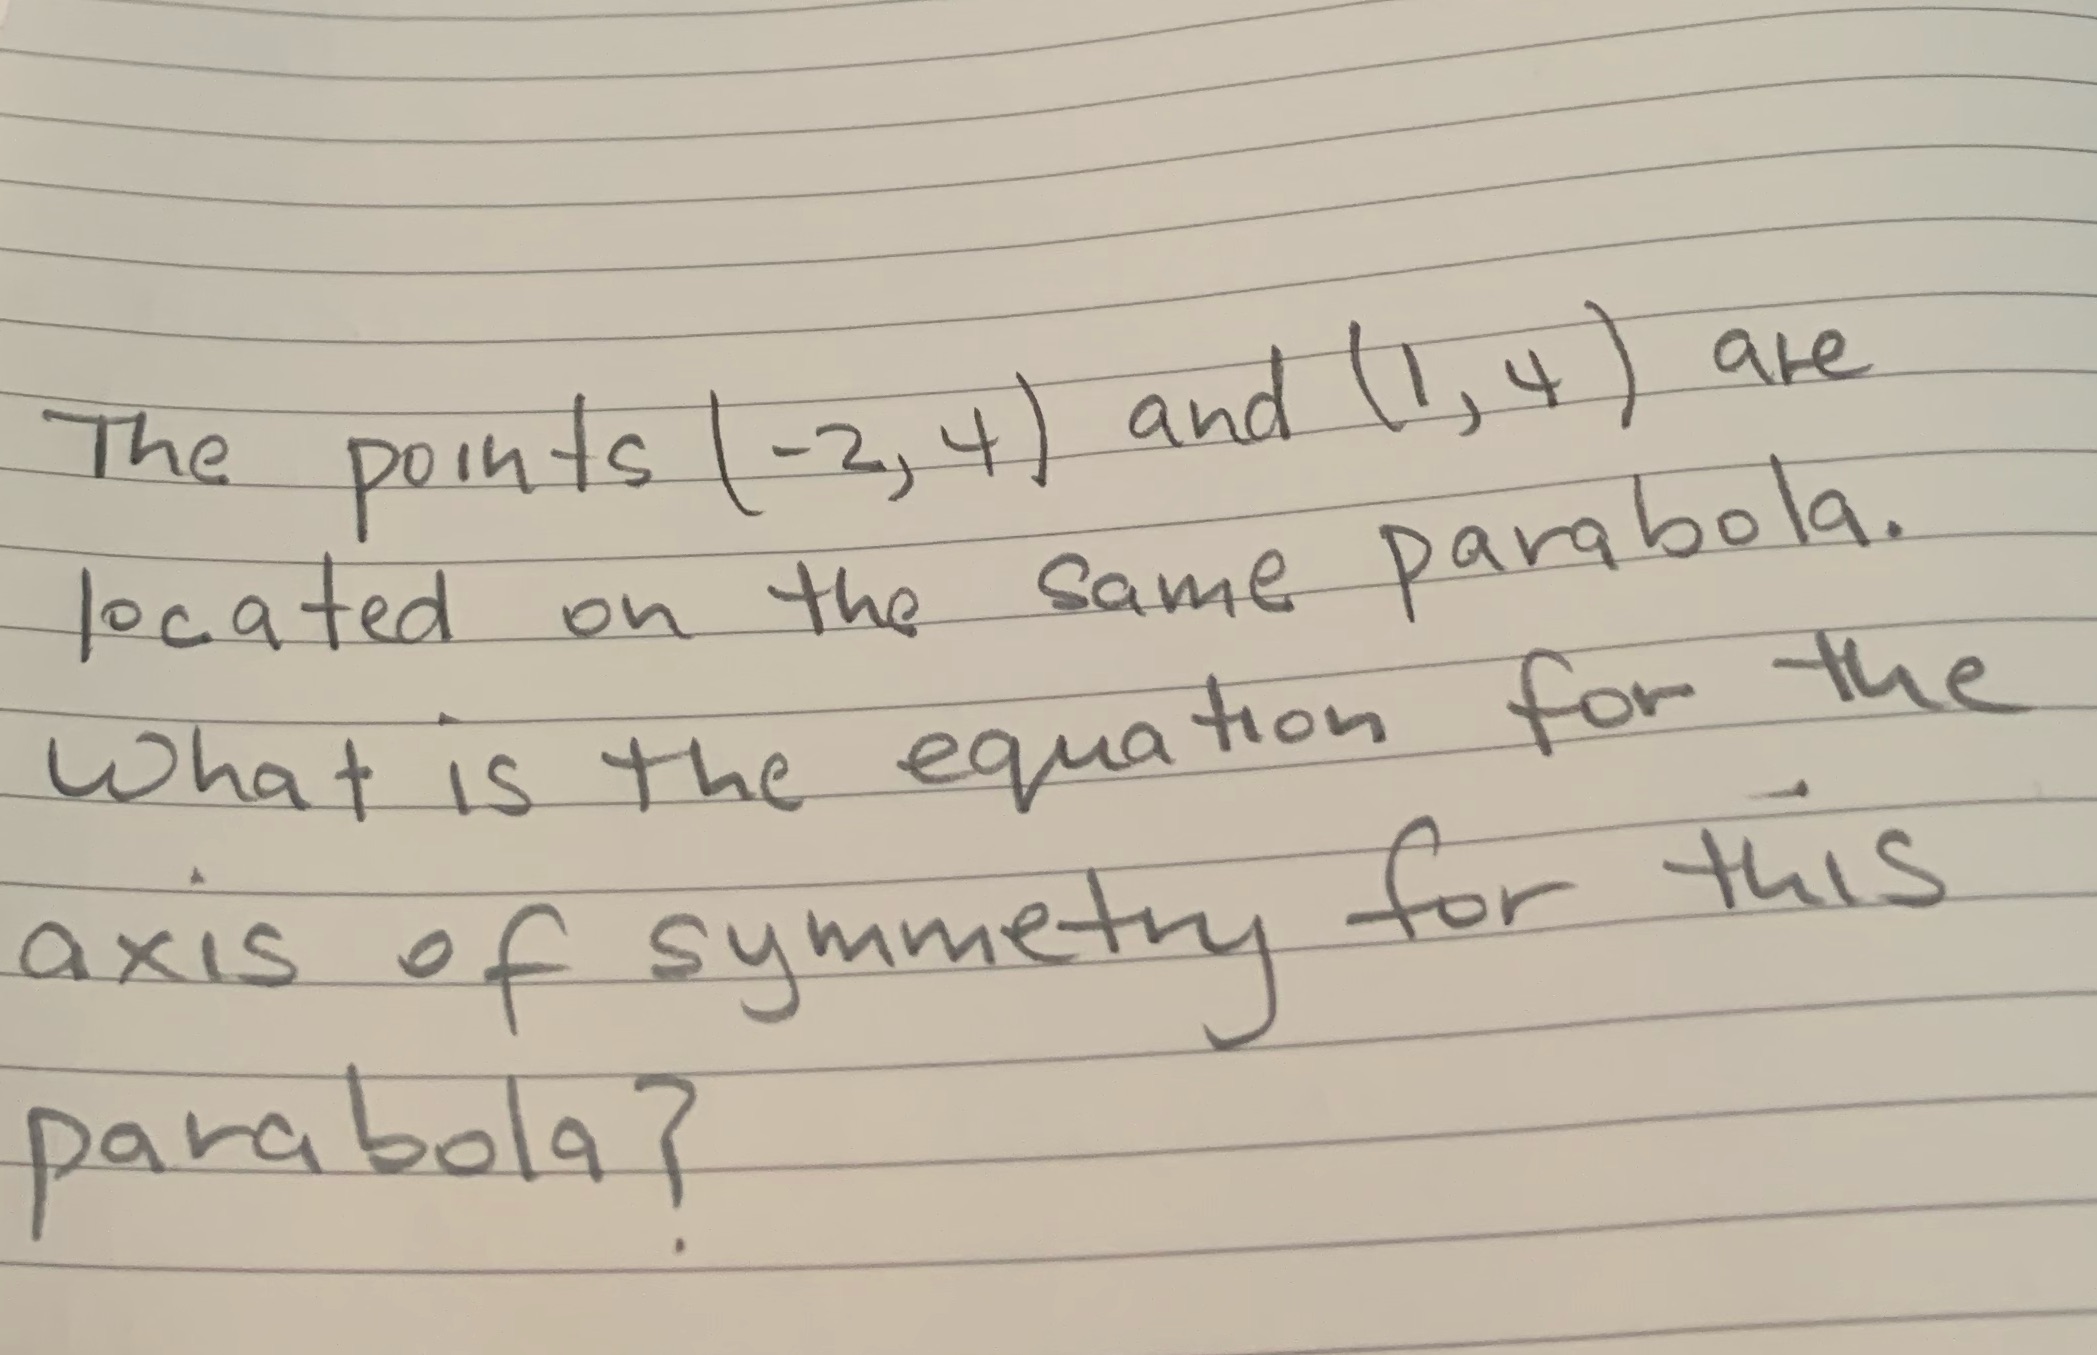 The points (-2, 4) and (1, 4) are
located on the same parabola.
What is the equation for the
axis of symmetry for this
parabola?